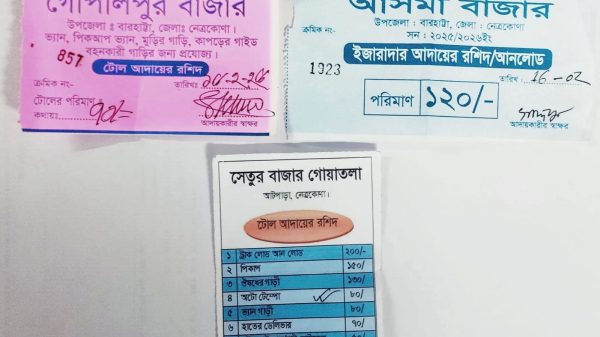 গোপালপুর বাজার
উপজেলা ঃ বারহাট্টা, জেলাঃ নেত্রকোণা।
ভ্যান, পিকআপ ভ্যান, মুড়ির গাড়ি, কাপড়ের গাইড
বহনকারী গাড়ির জন্য প্রযোজ্য।
857
টোল আদায়ের রশিদ
ক্রমিক নং-
তারিখঃ
টোলের পরিমাণ
কথায়ঃ
৭০/-
আদায়কারীর স্বাক্ষর
আসমা বাজার
উপজেলা : বারহাট্টা, জেলা : নেত্রকোণা।
সন : ২০২৫/২০২৬ইং
ক্রমিক নং-
ইজারাদার আদায়ের রশিদ/আনলোড
1923
তারিখ :
16-02
পরিমাণ ১২০/-
আদায়কারীর স্বাক্ষর
সেতুর বাজার গোয়াতলা
আটপাড়া, নেত্রকোণা।
টোল আদায়ের রশিদ
১ ট্রাক লোড আন লোড ২০০/-
২ পিকাপ ১৫০/
৩ ঔষধের গাড়ী ১৩০/
৪ অটো টেম্পো ৮০/
৫ ভ্যান গাড়ী ৮০/
৬ হাতের ডেলিভার ৭০/